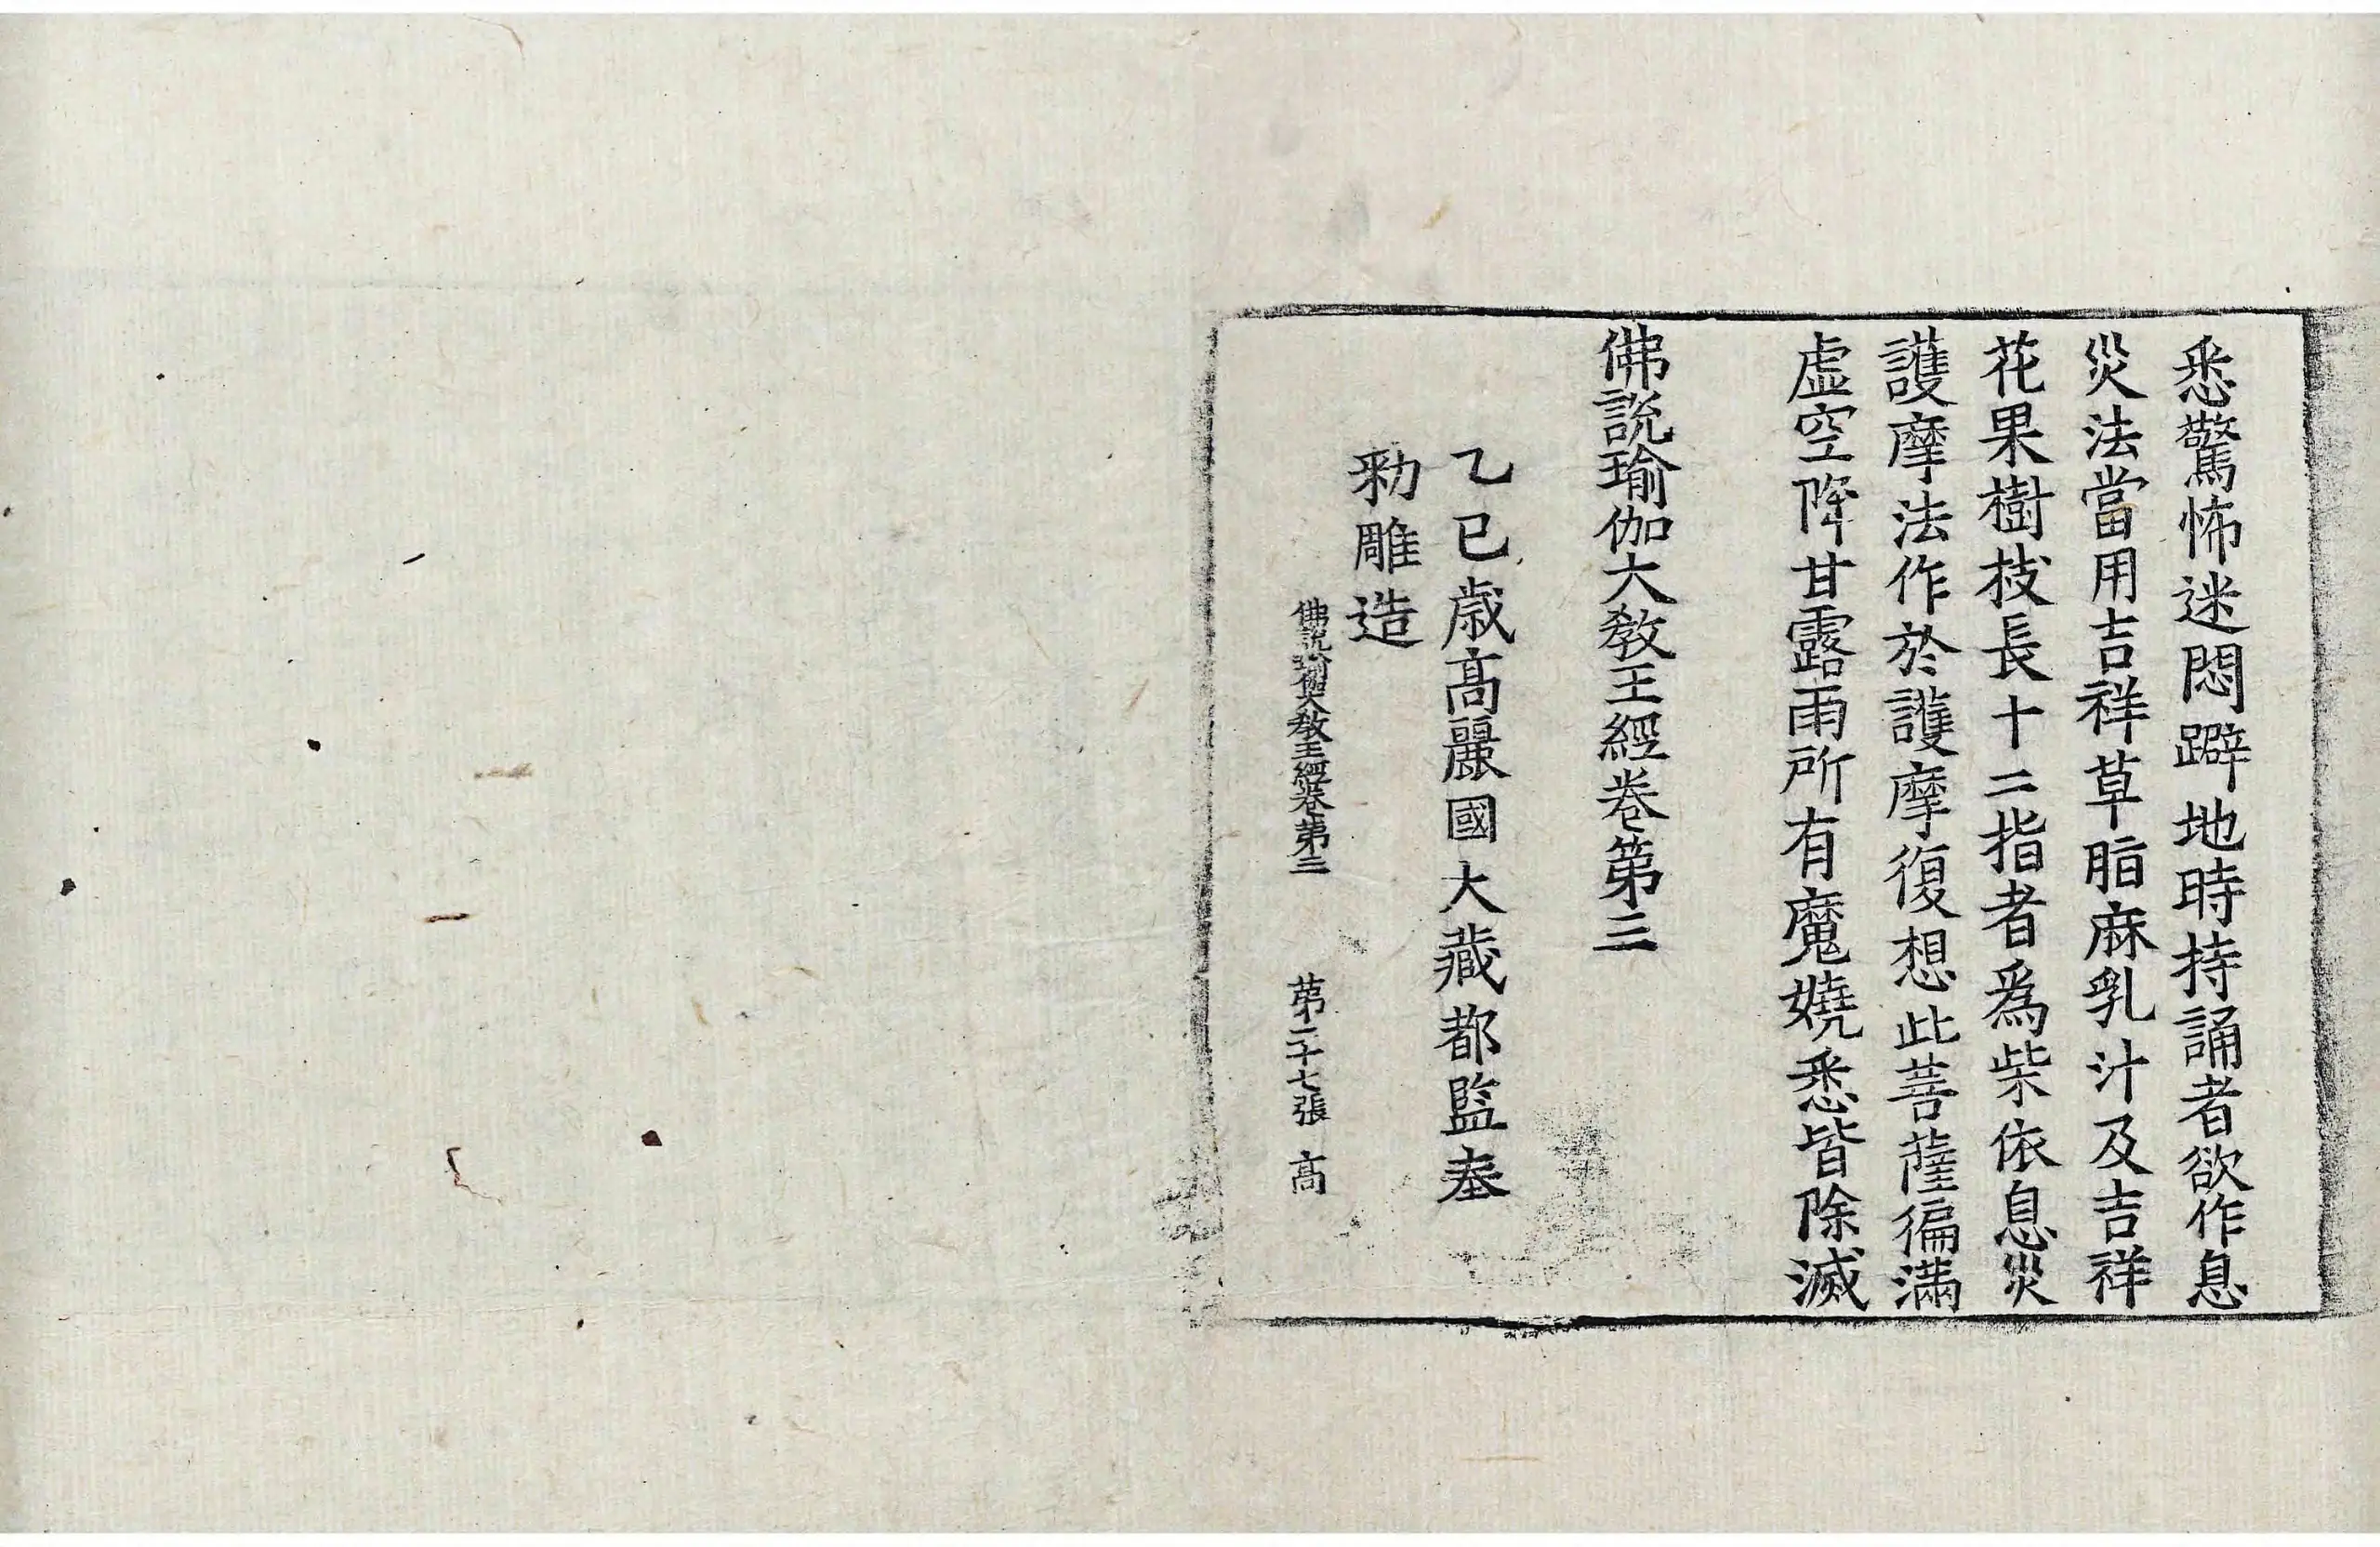 悉驚怖迷悶躃地時持誦者欲作息
災法當用吉祥草脂麻乳汁及吉祥
花果樹枝長十二指者為柴依息災
護摩法作於護摩復想此菩薩徧滿
虛空降甘露雨所有魔嬈悉皆除滅
佛說瑜伽大教王經卷第三
乙巳歲高麗國大藏都監奉
勅雕造
佛說瑜伽大教王經卷第三 第二十七張 高